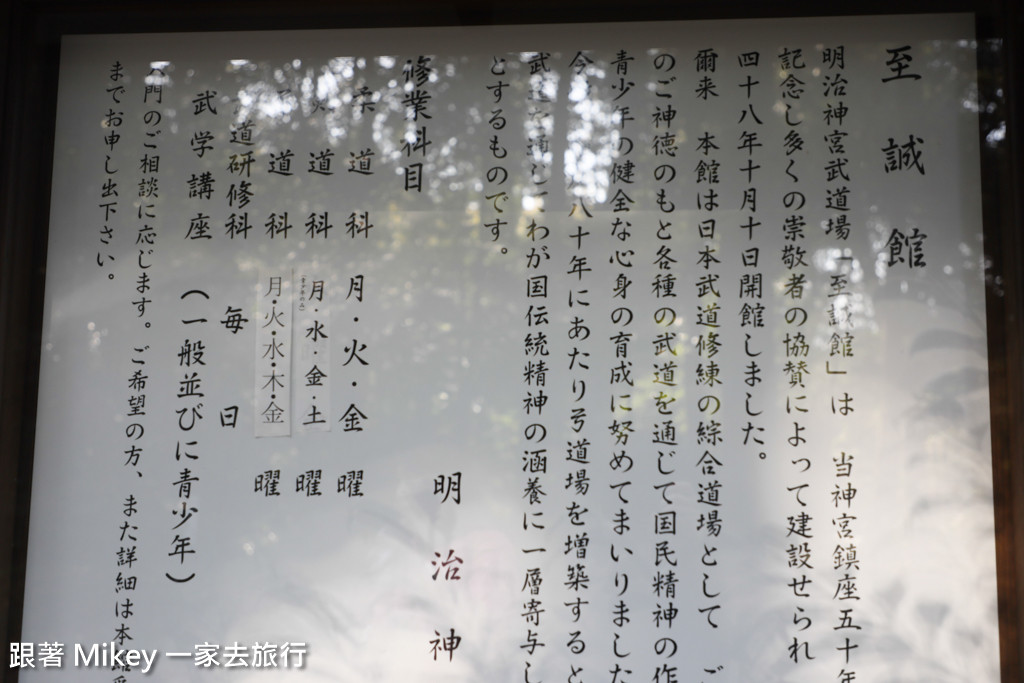 至誠館
明治神宮武道場「至誠館」は 当神宮鎮座五十年
記念し多くの崇敬者の協賛によって建設せられ
四十八年十月十日開館しました。
爾来 本館は日本武道修練の綜合道場として ご
のご神徳のもと各種の武道を通じて国民精神の作
青少年の健全な心身の育成に努めてまいりました
今 八十年にあたり弓道場を増築すると
武道を通じわが国伝統精神の涵養に一層寄与し
とするものです。
明治神
修業科目
柔道科 月・火・金曜
道科 月・水・金・土曜
道科 月・火・水・木・金曜
道研修科 毎日
武学講座 (一般並びに青少年)
門のご相談に応じます。ご希望の方、また詳細は本館
までお申し出下さい。
跟著 Mikey 一家去旅行